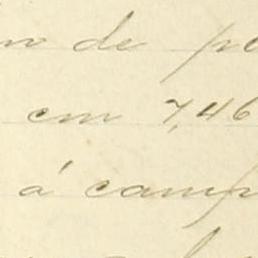 de
em 7,46
á camp